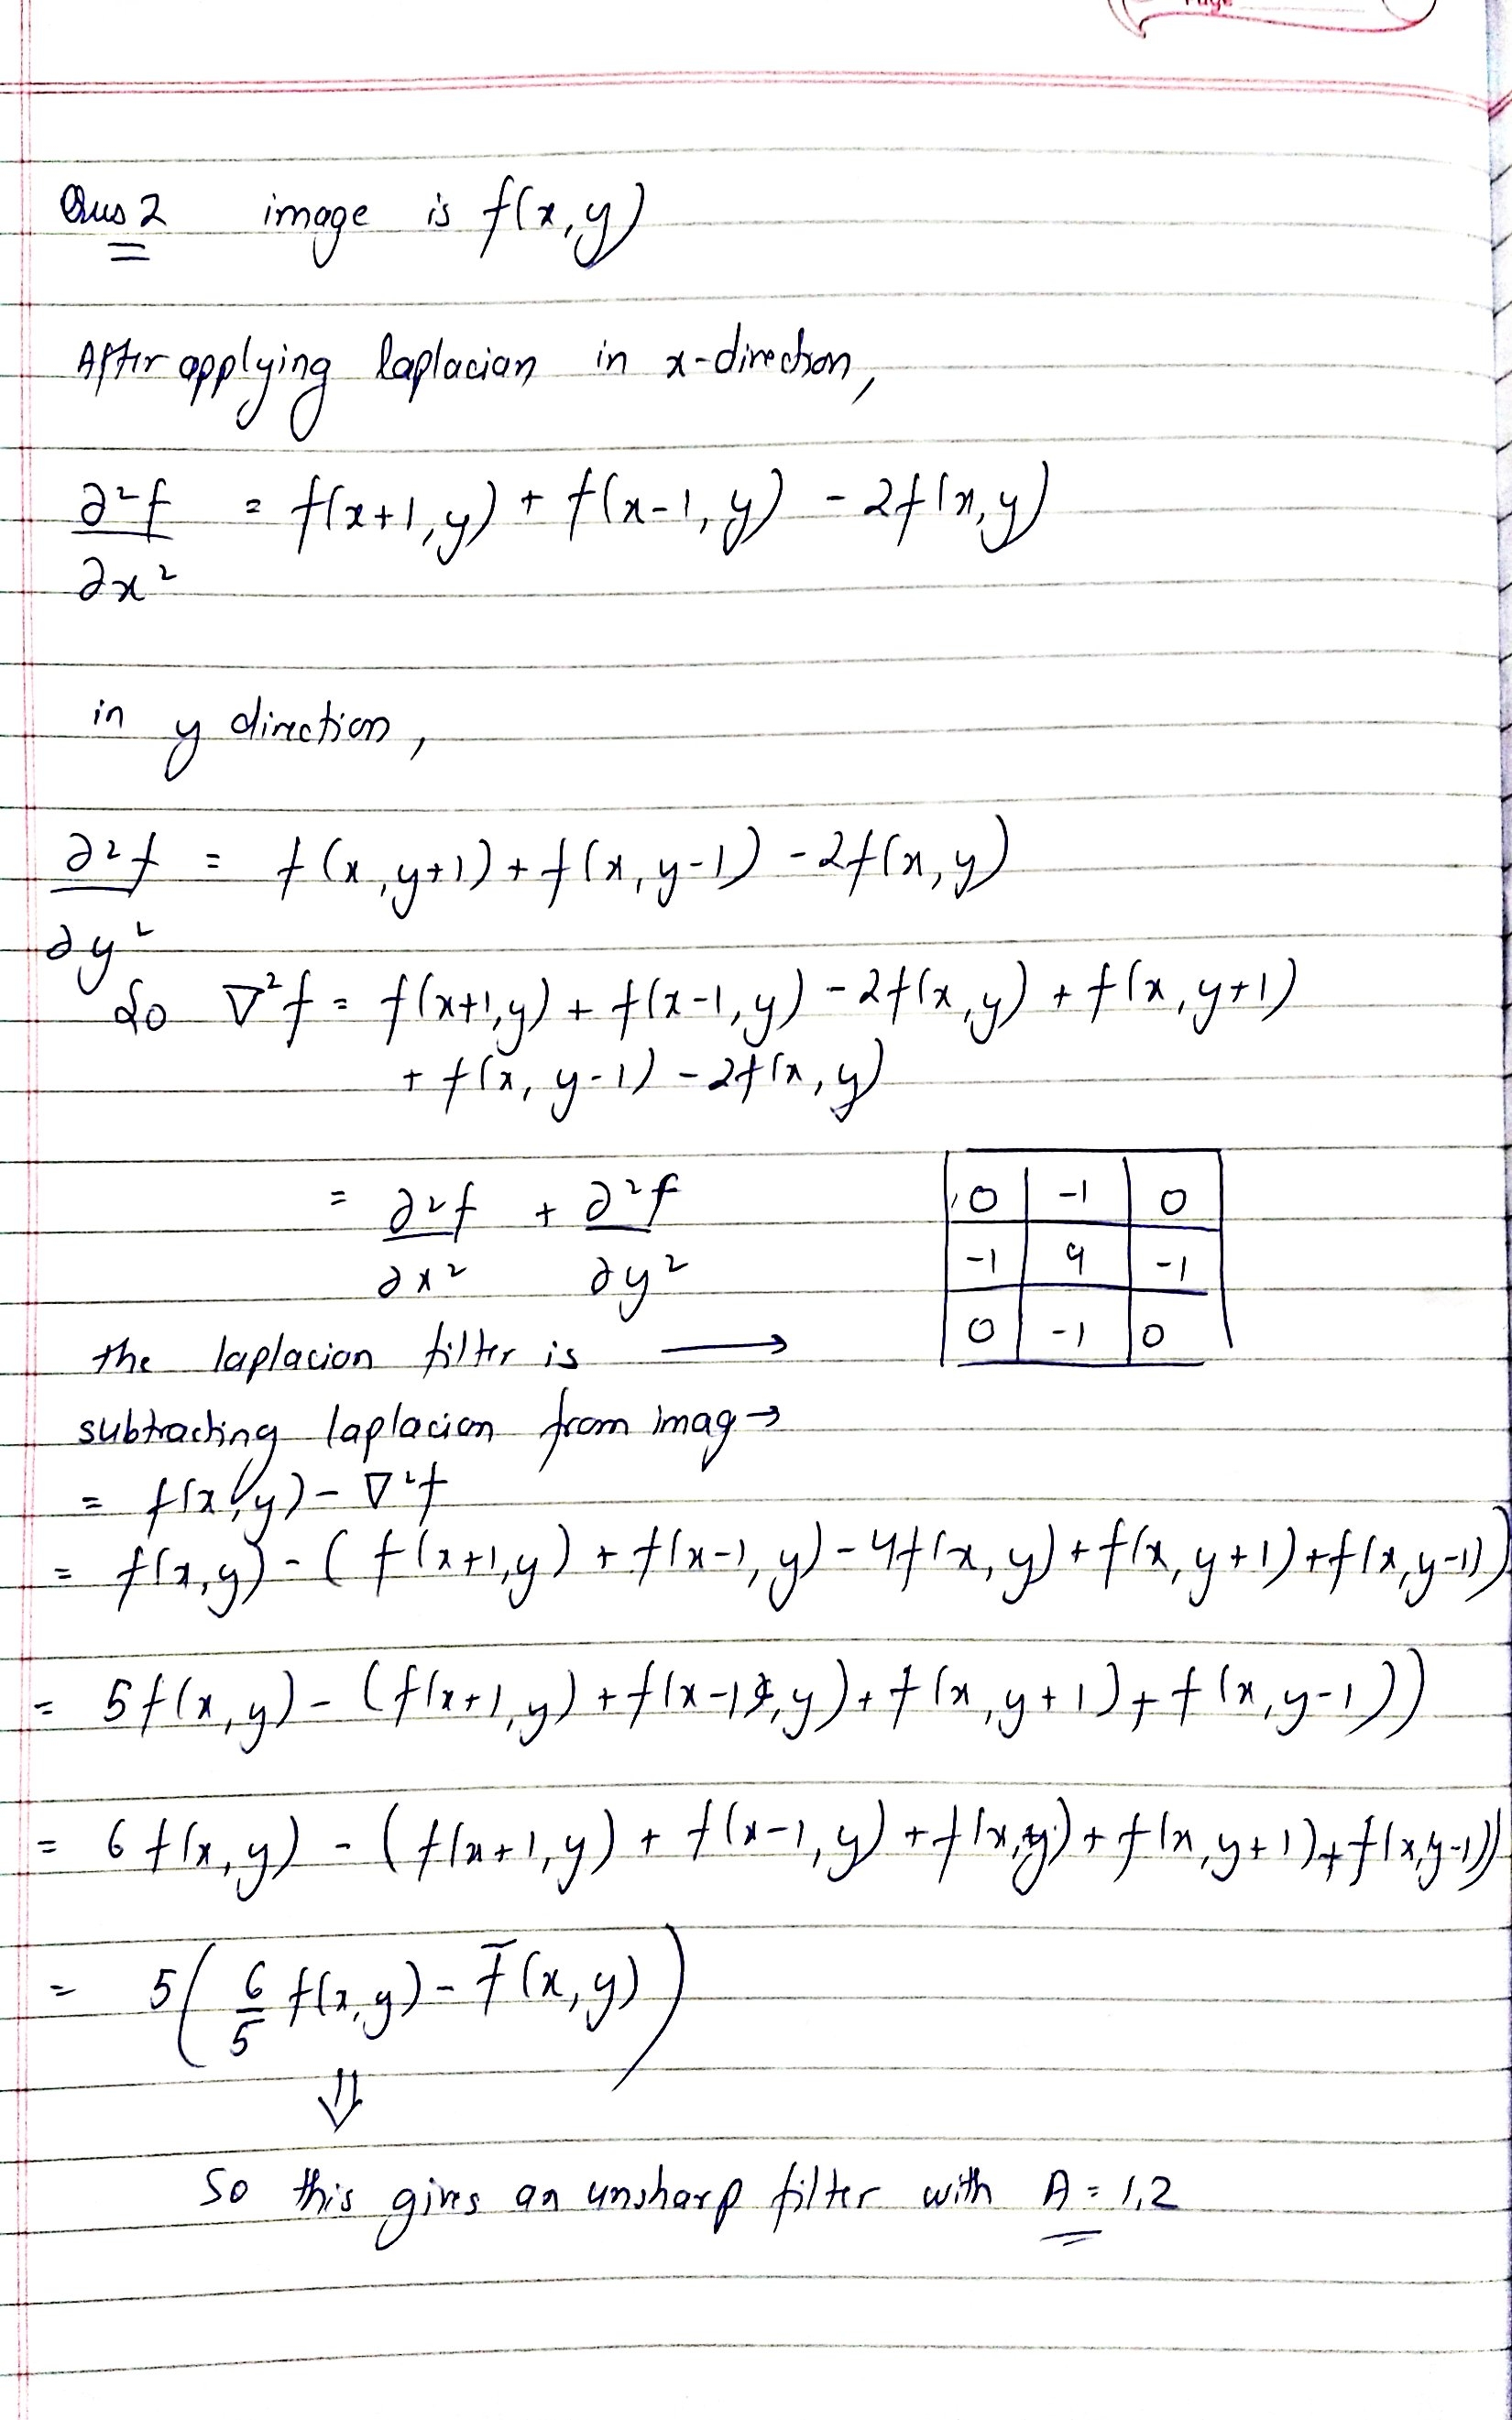 Page
Qus 2 image is f(x,y)
After applying laplacian in x-direction,
∂²f/∂x² = f(x+1,y) + f(x-1,y) - 2f(x,y)
in y direction,
∂²f/∂y² = f(x,y+1) + f(x,y-1) - 2f(x,y)
So ∇²f = f(x+1,y) + f(x-1,y) - 2f(x,y) + f(x,y+1)
+ f(x,y-1) - 2f(x,y)
= ∂²f/∂x² + ∂²f/∂y²
0 -1 0
-1 4 -1
0 -1 0
the laplacian filter is →
subtracting laplacian from imag →
= f(x,y) - ∇²f
= f(x,y) - (f(x+1,y) + f(x-1,y) - 4f(x,y) + f(x,y+1) + f(x,y-1))
= 5f(x,y) - (f(x+1,y) + f(x-1,y) + f(x,y+1) + f(x,y-1))
= 6f(x,y) - (f(x+1,y) + f(x-1,y) + f(x,y) + f(x,y+1) + f(x,y-1))
= 5(6/5 f(x,y) - f̄(x,y))
⇓
So this gives an unsharp filter with A = 1.2